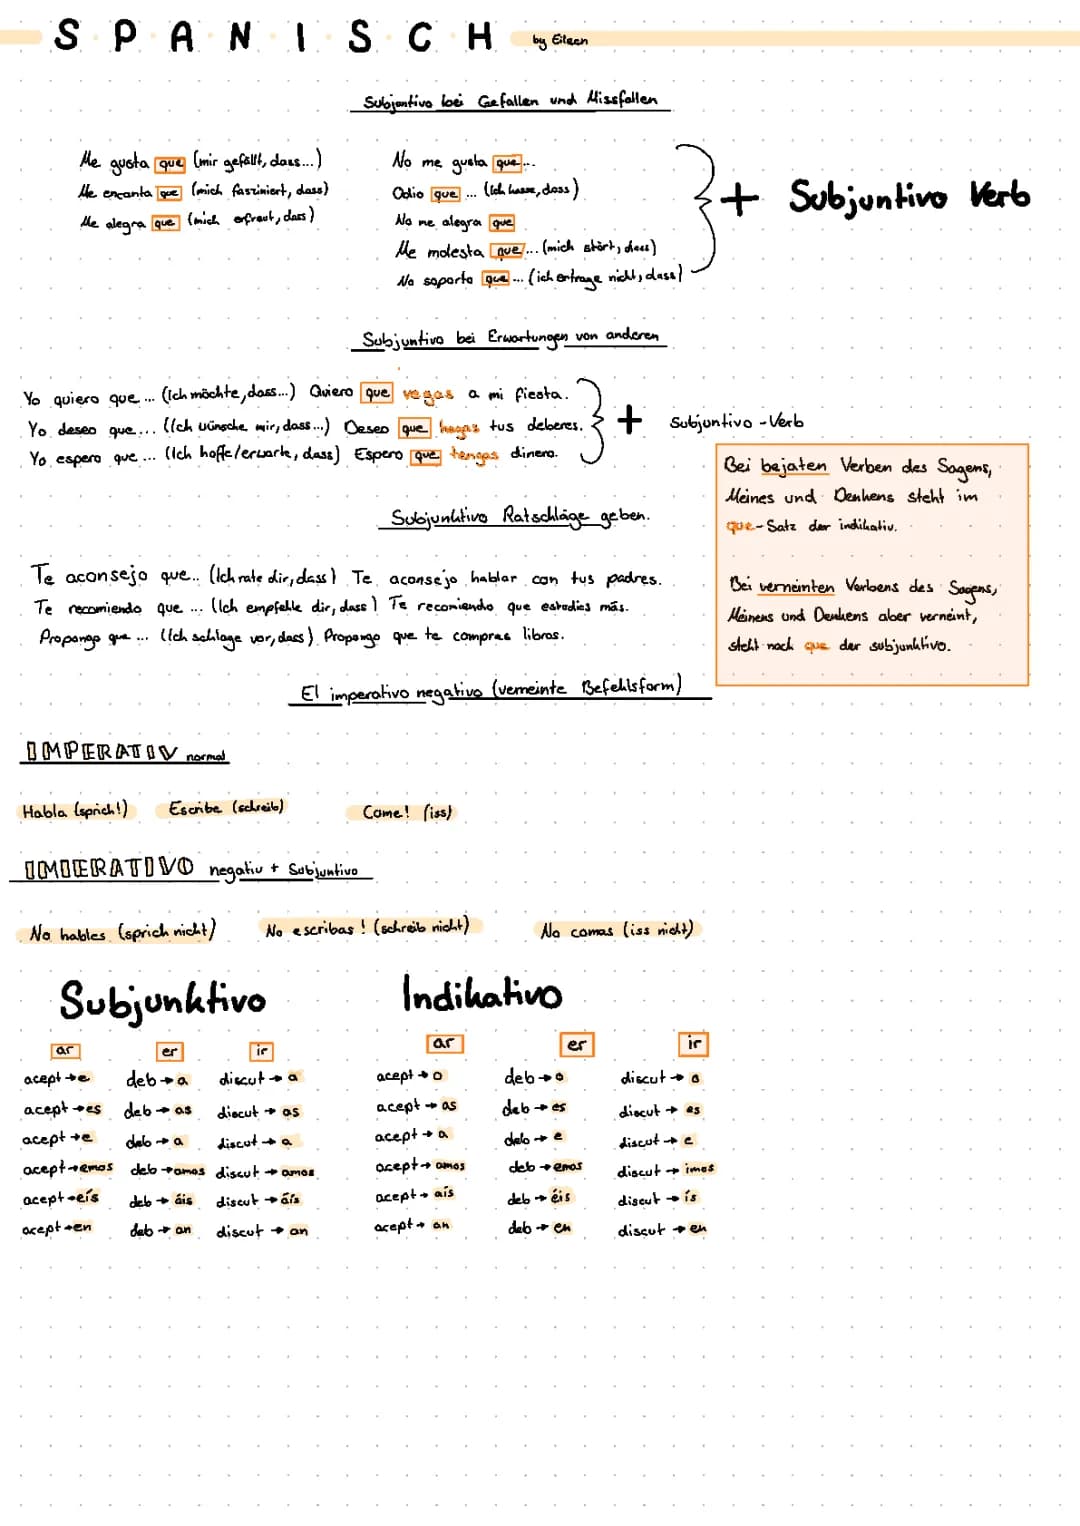 SPANISCH by Eileen
Subjontivo bei Gefallen und Missfallen
Me gusta que (mir gefällt, dass...)
Me encanta que (mich fasziniert, dass)
Me alegra que (mich erfreut, dass)
No me gusta que...
Odio que ... (Ich hasse, dass)
No me alegra que
Me molesta que... (mich stört, dass)
No soporto que ... (ich ertrage nicht, dass)
+ Subjuntivo Verb
Subjuntivo bei Erwartungen von anderen
Yo quiero que ... (Ich möchte, dass...) Quiero que vegas a mi fiesta.
Yo deseo que... (Ich wünsche mir, dass...) Deseo que hagas tus deberes.
Yo espero que ... (Ich hoffe/erwarte, dass) Espero que tengas dinero.
+ Subjuntivo-Verb
Bei bejaten Verben des Sagens,
Meines und Denkens steht im
que-Satz der indikativ.
Bei verneinten Verbens des Sagens,
Meinens und Denkens aber verneint,
steht nach que der subjunktivo.
Subjunktivo Ratschläge geben.
Te aconsejo que.. (Ich rate dir, dass) Te aconsejo hablar con tus padres.
Te recomiendo que ... (Ich empfehle dir, dass) Te recomiendo que estudies más.
Propongo que ... (Ich schlage vor, dass) Propongo que te compres libros.
El imperativo negativo (verneinte Befehlsform)
IMPERATIV normal
Habla (sprich!) Escribe (schreib) Come! (iss)
IMPERATIVO negativ + Subjuntivo
No hables (sprich nicht) No escribas! (schreib nicht) No comas (iss nicht)
Subjunktivo
ar er ir
acept → e deb → a discut → a
acept → es deb → as discut → as
acept → e deb → a discut → a
acept → emos deb → amos discut → amos
acept → eís deb → áis discut → áis
acept → en deb → an discut → an
Indikativo
ar er ir
acept → o deb → o discut → o
acept → as deb → es discut → es
acept → a deb → e discut → e
acept → amos deb → emos discut → imos
acept → aís deb → éis discut → ís
acept → an deb → en discut → en